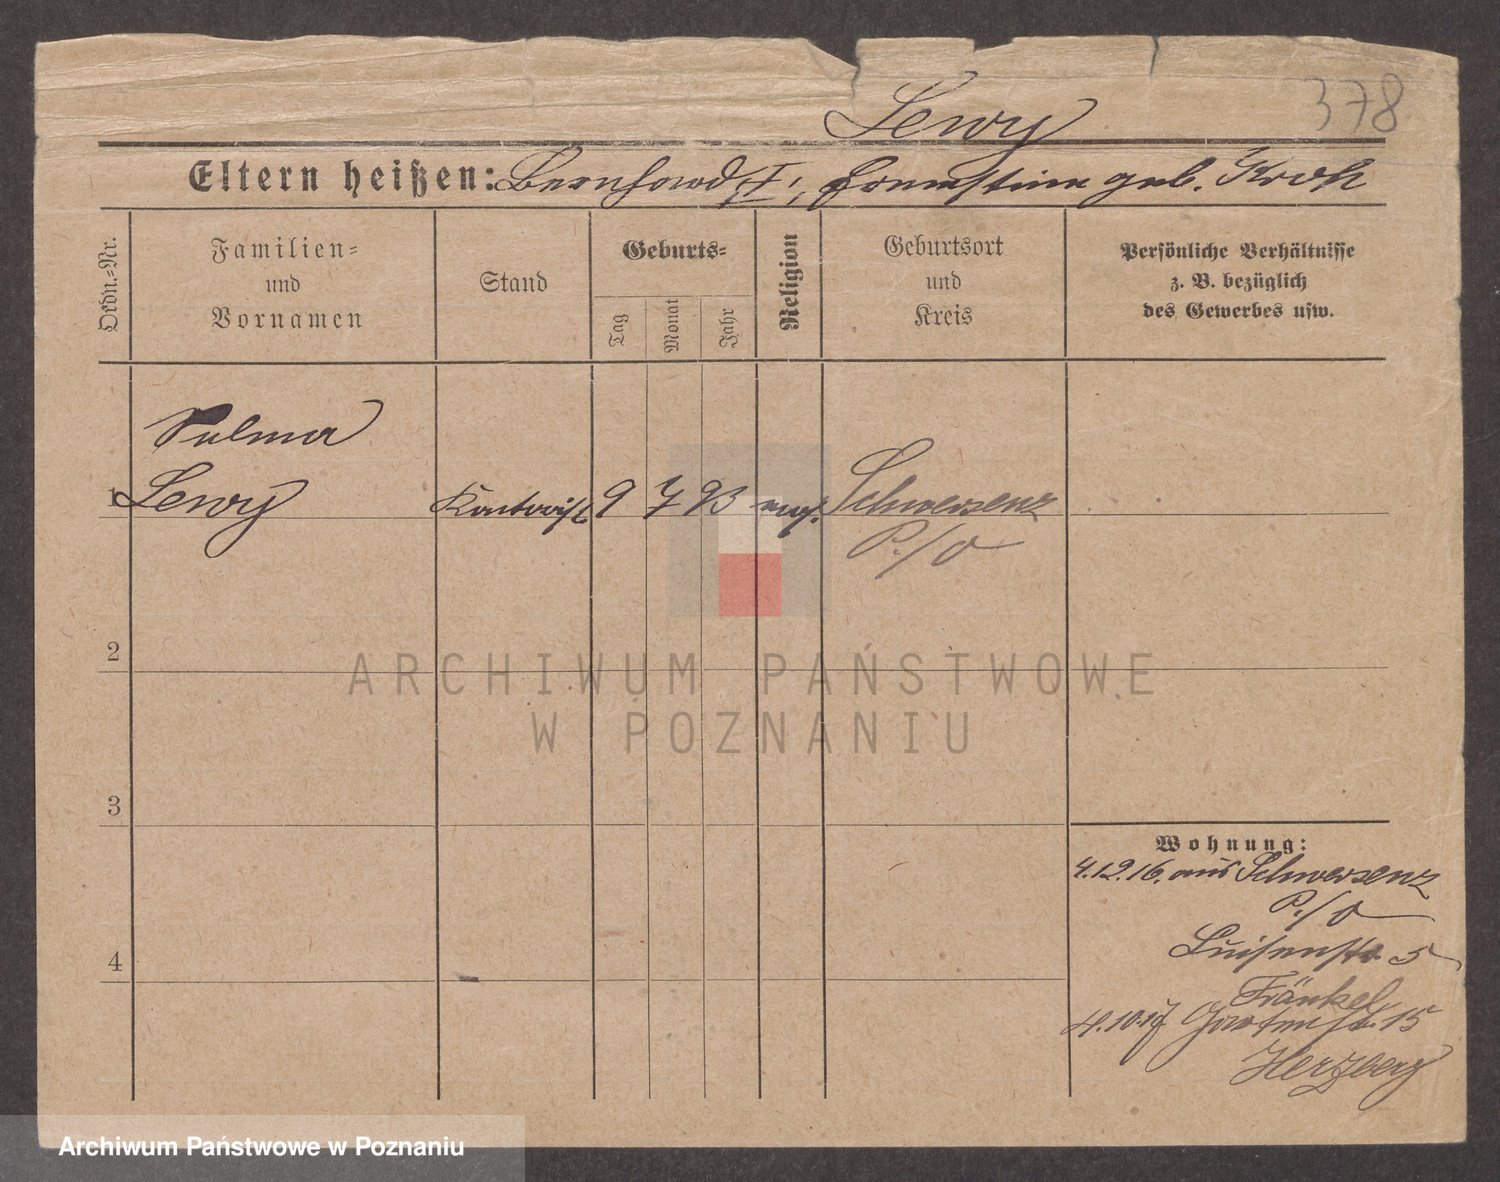 378
Lewy
Eltern heißen: Bernhard I, Ernestine geb. Kroh
Ordn.-Nr.
Familien-
und
Vornamen
Stand
Geburts-
Tag
Monat
Jahr
Religion
Geburtsort
und
Kreis
Persönliche Verhältnisse
z. B. bezüglich
des Gewerbes usw.
Selma
1 Lewy Kontorist 9 7 93 mos. Schwersenz
P./O
2
3
4
Wohnung:
4.12.16. aus Schwersenz
P./O
Luisenstr. 5
Fränkel
4.10.17 Gartenstr. 15
Herzberg
ARCHIWUM PAŃSTWOWE
W POZNANIU
Archiwum Państwowe w Poznaniu